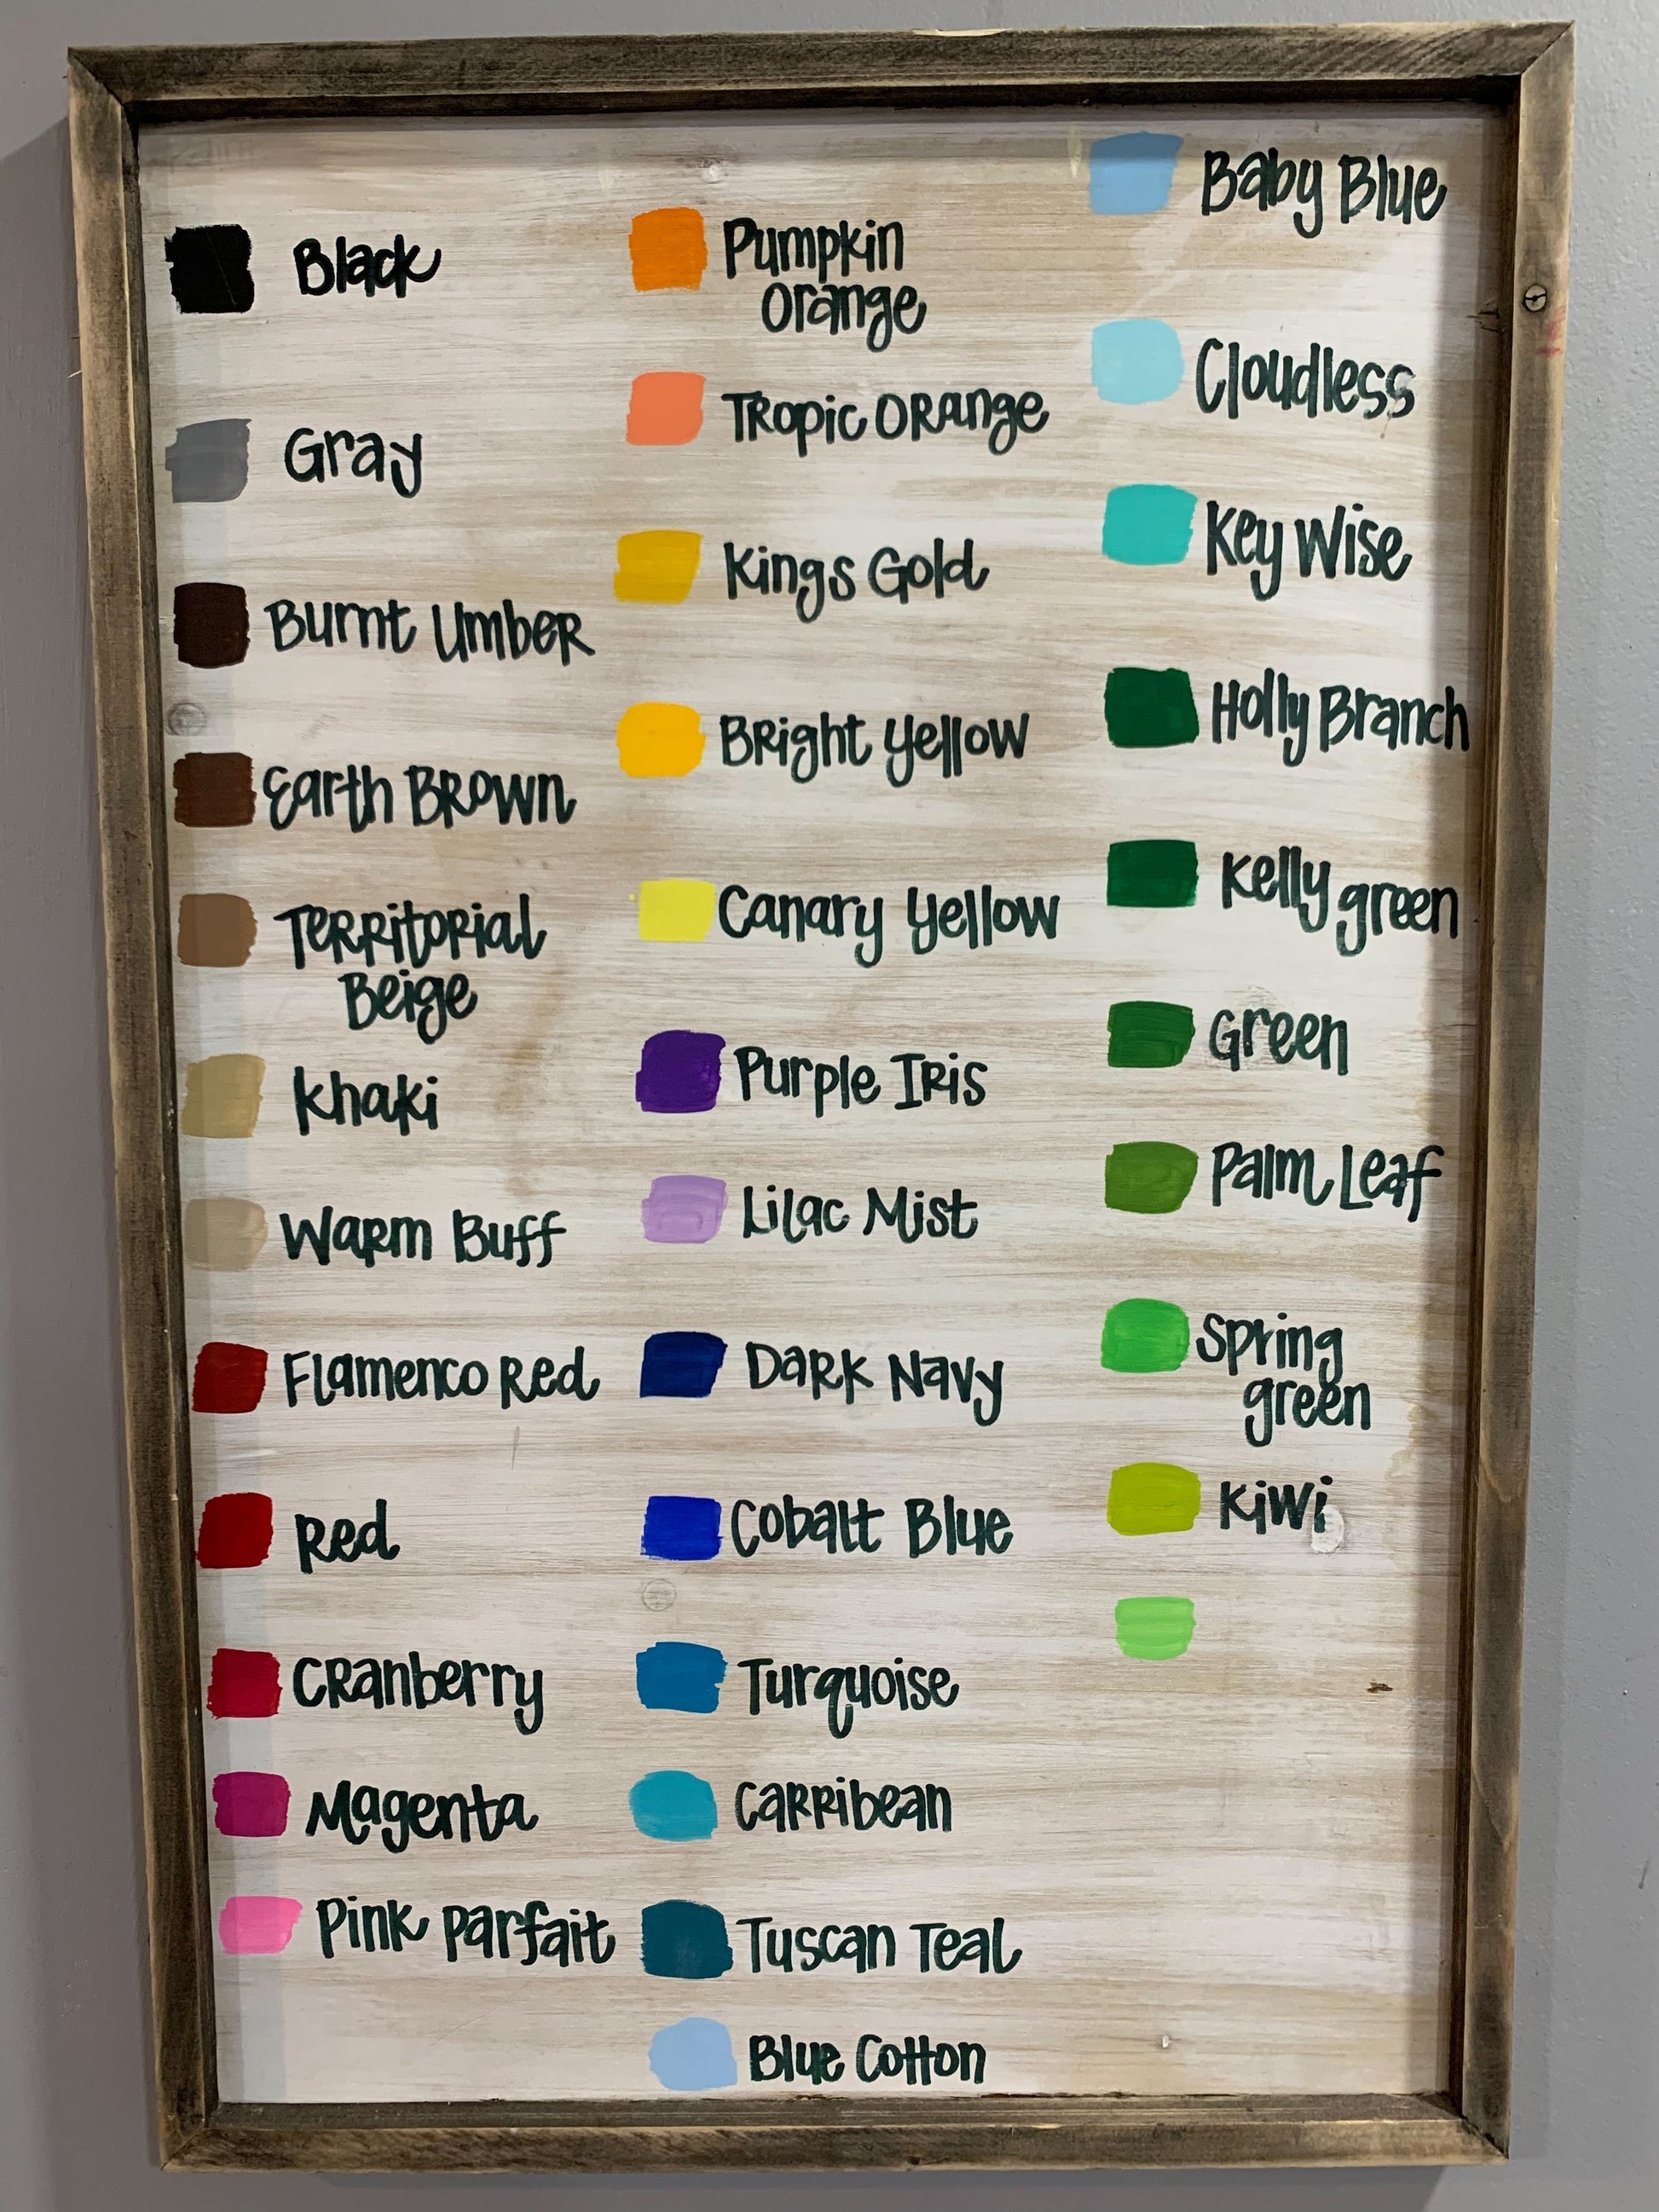 Black
Gray
Burnt Umber
Earth Brown
Territorial
Beige
Khaki
Warm Buff
Flamenco Red
Red
Cranberry
Magenta
Pink Parfait
Pumpkin
Orange
Tropic Orange
Kings Gold
Bright Yellow
Canary Yellow
Purple Iris
Lilac Mist
Dark Navy
Cobalt Blue
Turquoise
Carribean
Tuscan Teal
Blue Cotton
Baby Blue
Cloudless
Key Wise
Holly Branch
Kelly green
Green
Palm Leaf
Spring
green
Kiwi